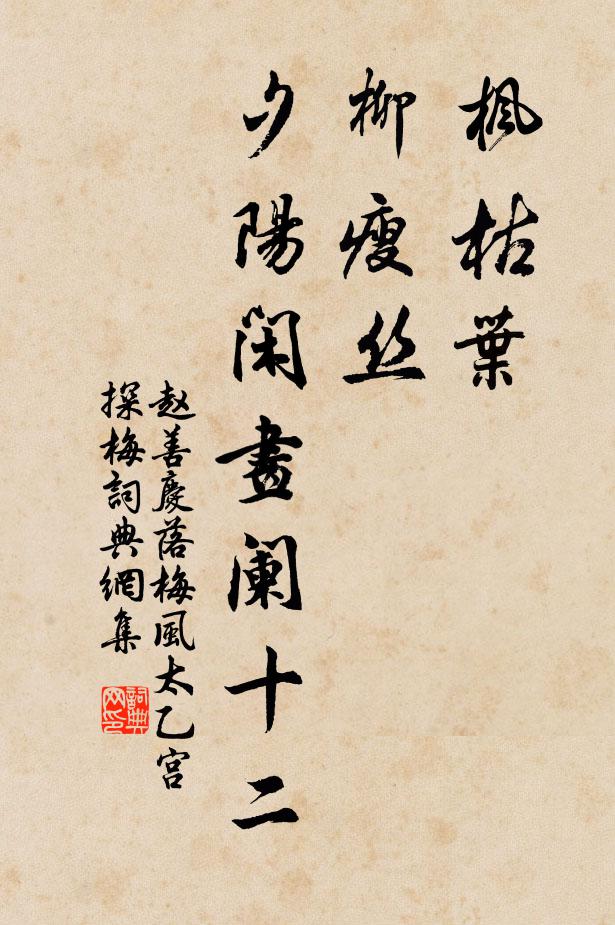 楓枯葉
柳瘦丝
夕陽閑畫闌十二
赵善慶落梅風太乙宮
探梅詞典網集
詞典
网印